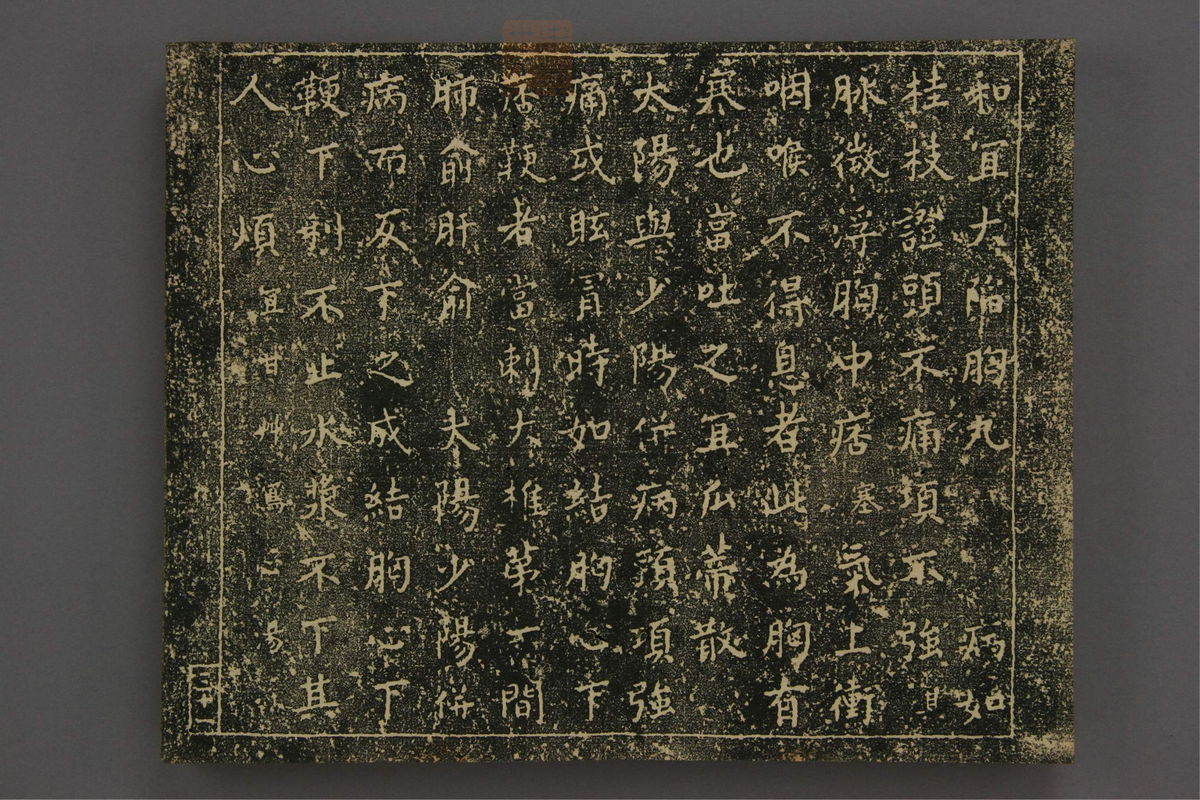 和宜大陷胸丸　病如
桂枝證頭不痛項不強耳
脉微浮胸中痞塞氣上衝
咽喉不得息者此為胸有
寒也當吐之宜瓜蒂散
太陽與少陽併病頭項強
痛或眩冒時如結胸心下
痞鞕者當刺大椎第一間
肺俞肝俞　太陽少陽併
病而反下之成結胸心下
鞕下利不止水漿不下其
人心煩宜甘艸瀉心湯